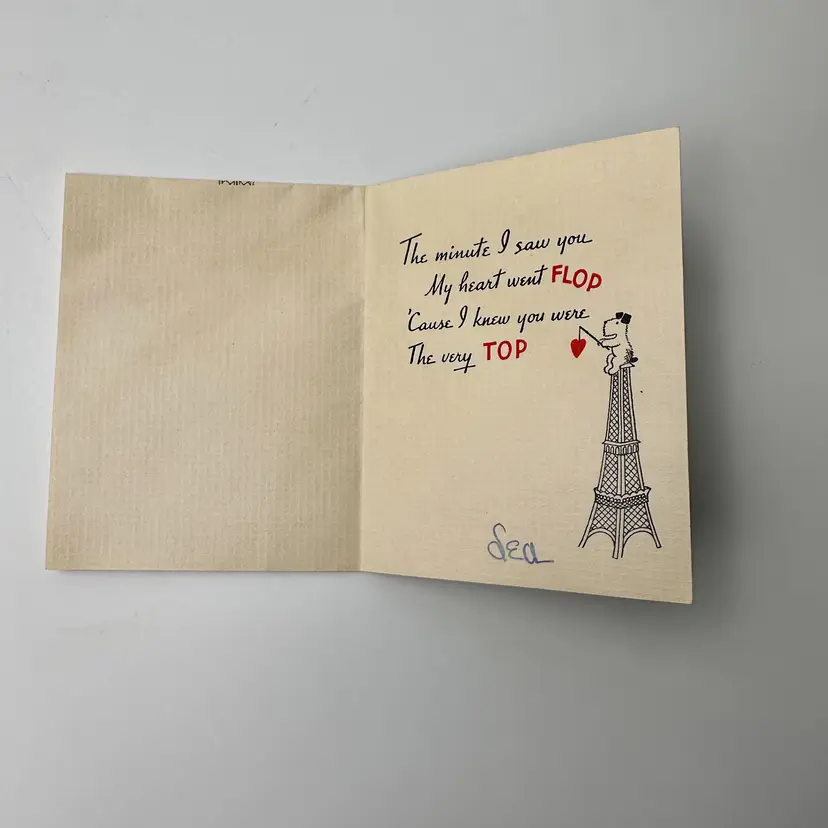 The minute I saw you
My heart went FLOP
'Cause I knew you were
The very TOP